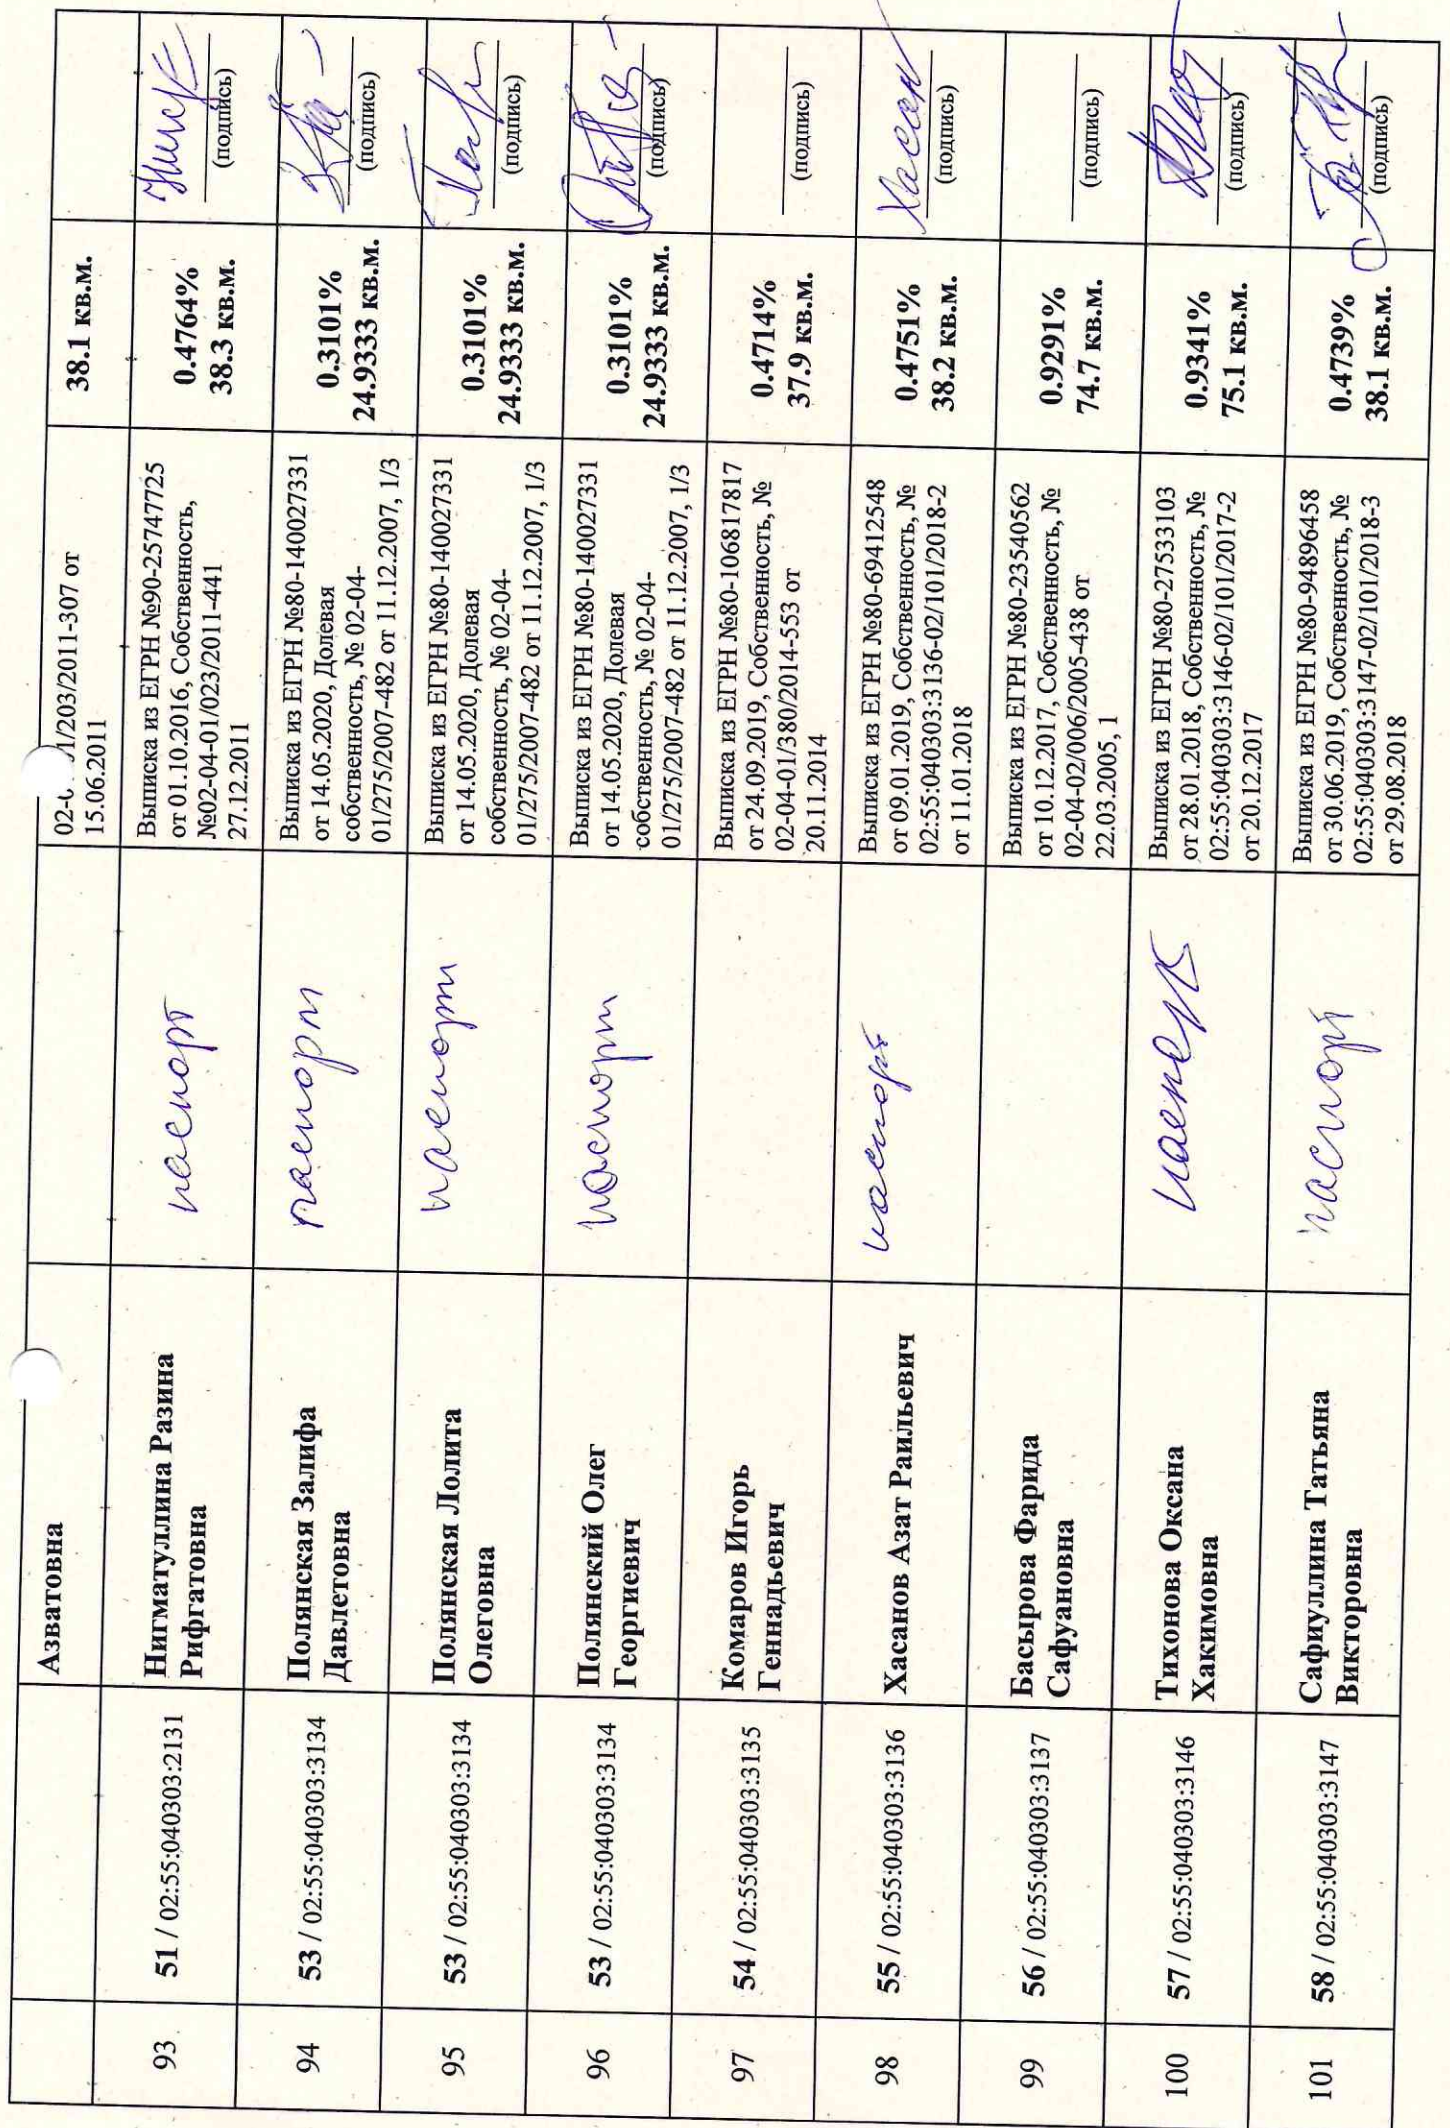 Азватовна
02-0 1/203/2011-307 от
15.06.2011
38.1 кв.м.
93
51 / 02:55:040303:2131
Нигматуллина Разина
Рифгатовна
паспорт
Выписка из ЕГРН №90-25747725
от 01.10.2016, Собственность,
№02-04-01/023/2011-441
27.12.2011
0.4764%
38.3 кв.м.
(подпись)
94
53 / 02:55:040303:3134
Полянская Залифа
Давлетовна
паспорт
Выписка из ЕГРН №80-140027331
от 14.05.2020, Долевая
собственность, № 02-04-
01/275/2007-482 от 11.12.2007, 1/3
0.3101%
24.9333 кв.м.
(подпись)
95
53 / 02:55:040303:3134
Полянская Лолита
Олеговна
паспорт
Выписка из ЕГРН №80-140027331
от 14.05.2020, Долевая
собственность, № 02-04-
01/275/2007-482 от 11.12.2007, 1/3
0.3101%
24.9333 кв.м.
(подпись)
96
53 / 02:55:040303:3134
Полянский Олег
Георгиевич
паспорт
Выписка из ЕГРН №80-140027331
от 14.05.2020, Долевая
собственность, № 02-04-
01/275/2007-482 от 11.12.2007, 1/3
0.3101%
24.9333 кв.м.
(подпись)
97
54 / 02:55:040303:3135
Комаров Игорь
Геннадьевич
Выписка из ЕГРН №80-106817817
от 24.09.2019, Собственность, №
02-04-01/380/2014-553 от
20.11.2014
0.4714%
37.9 кв.м.
(подпись)
98
55 / 02:55:040303:3136
Хасанов Азат Раильевич
паспорт
Выписка из ЕГРН №80-69412548
от 09.01.2019, Собственность, №
02:55:040303:3136-02/101/2018-2
от 11.01.2018
0.4751%
38.2 кв.м.
Хасан
(подпись)
99
56 / 02:55:040303:3137
Басырова Фарида
Сафуановна
Выписка из ЕГРН №80-23540562
от 10.12.2017, Собственность, №
02-04-02/006/2005-438 от
22.03.2005, 1
0.9291%
74.7 кв.м.
(подпись)
100
57 / 02:55:040303:3146
Тихонова Оксана
Хакимовна
Выписка из ЕГРН №80-27533103
от 28.01.2018, Собственность, №
02:55:040303:3146-02/101/2017-2
от 20.12.2017
0.9341%
75.1 кв.м.
(подпись)
101
58 / 02:55:040303:3147
Сафиуллина Татьяна
Викторовна
паспорт
Выписка из ЕГРН №80-94896458
от 30.06.2019, Собственность, №
02:55:040303:3147-02/101/2018-3
от 29.08.2018
0.4739%
38.1 кв.м.
(подпись)